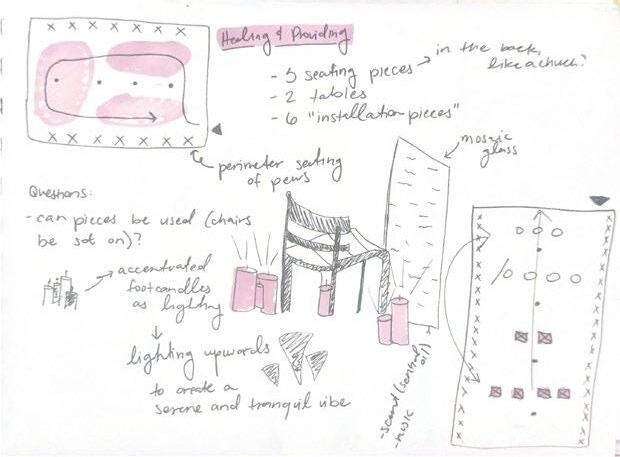 Healing & Providing
- 5 seating pieces → in the back,
like a chuch?
- 2 tables
- 6 "installation pieces"
mosaic
glass
perimeter seating
of pews
Questions:
- can pieces be used (chairs
be sat on)?
accentuated
footcandles
as lighting
lighting upwards
to create a
serene and tranquil vibe
- scent (
oil)
- music